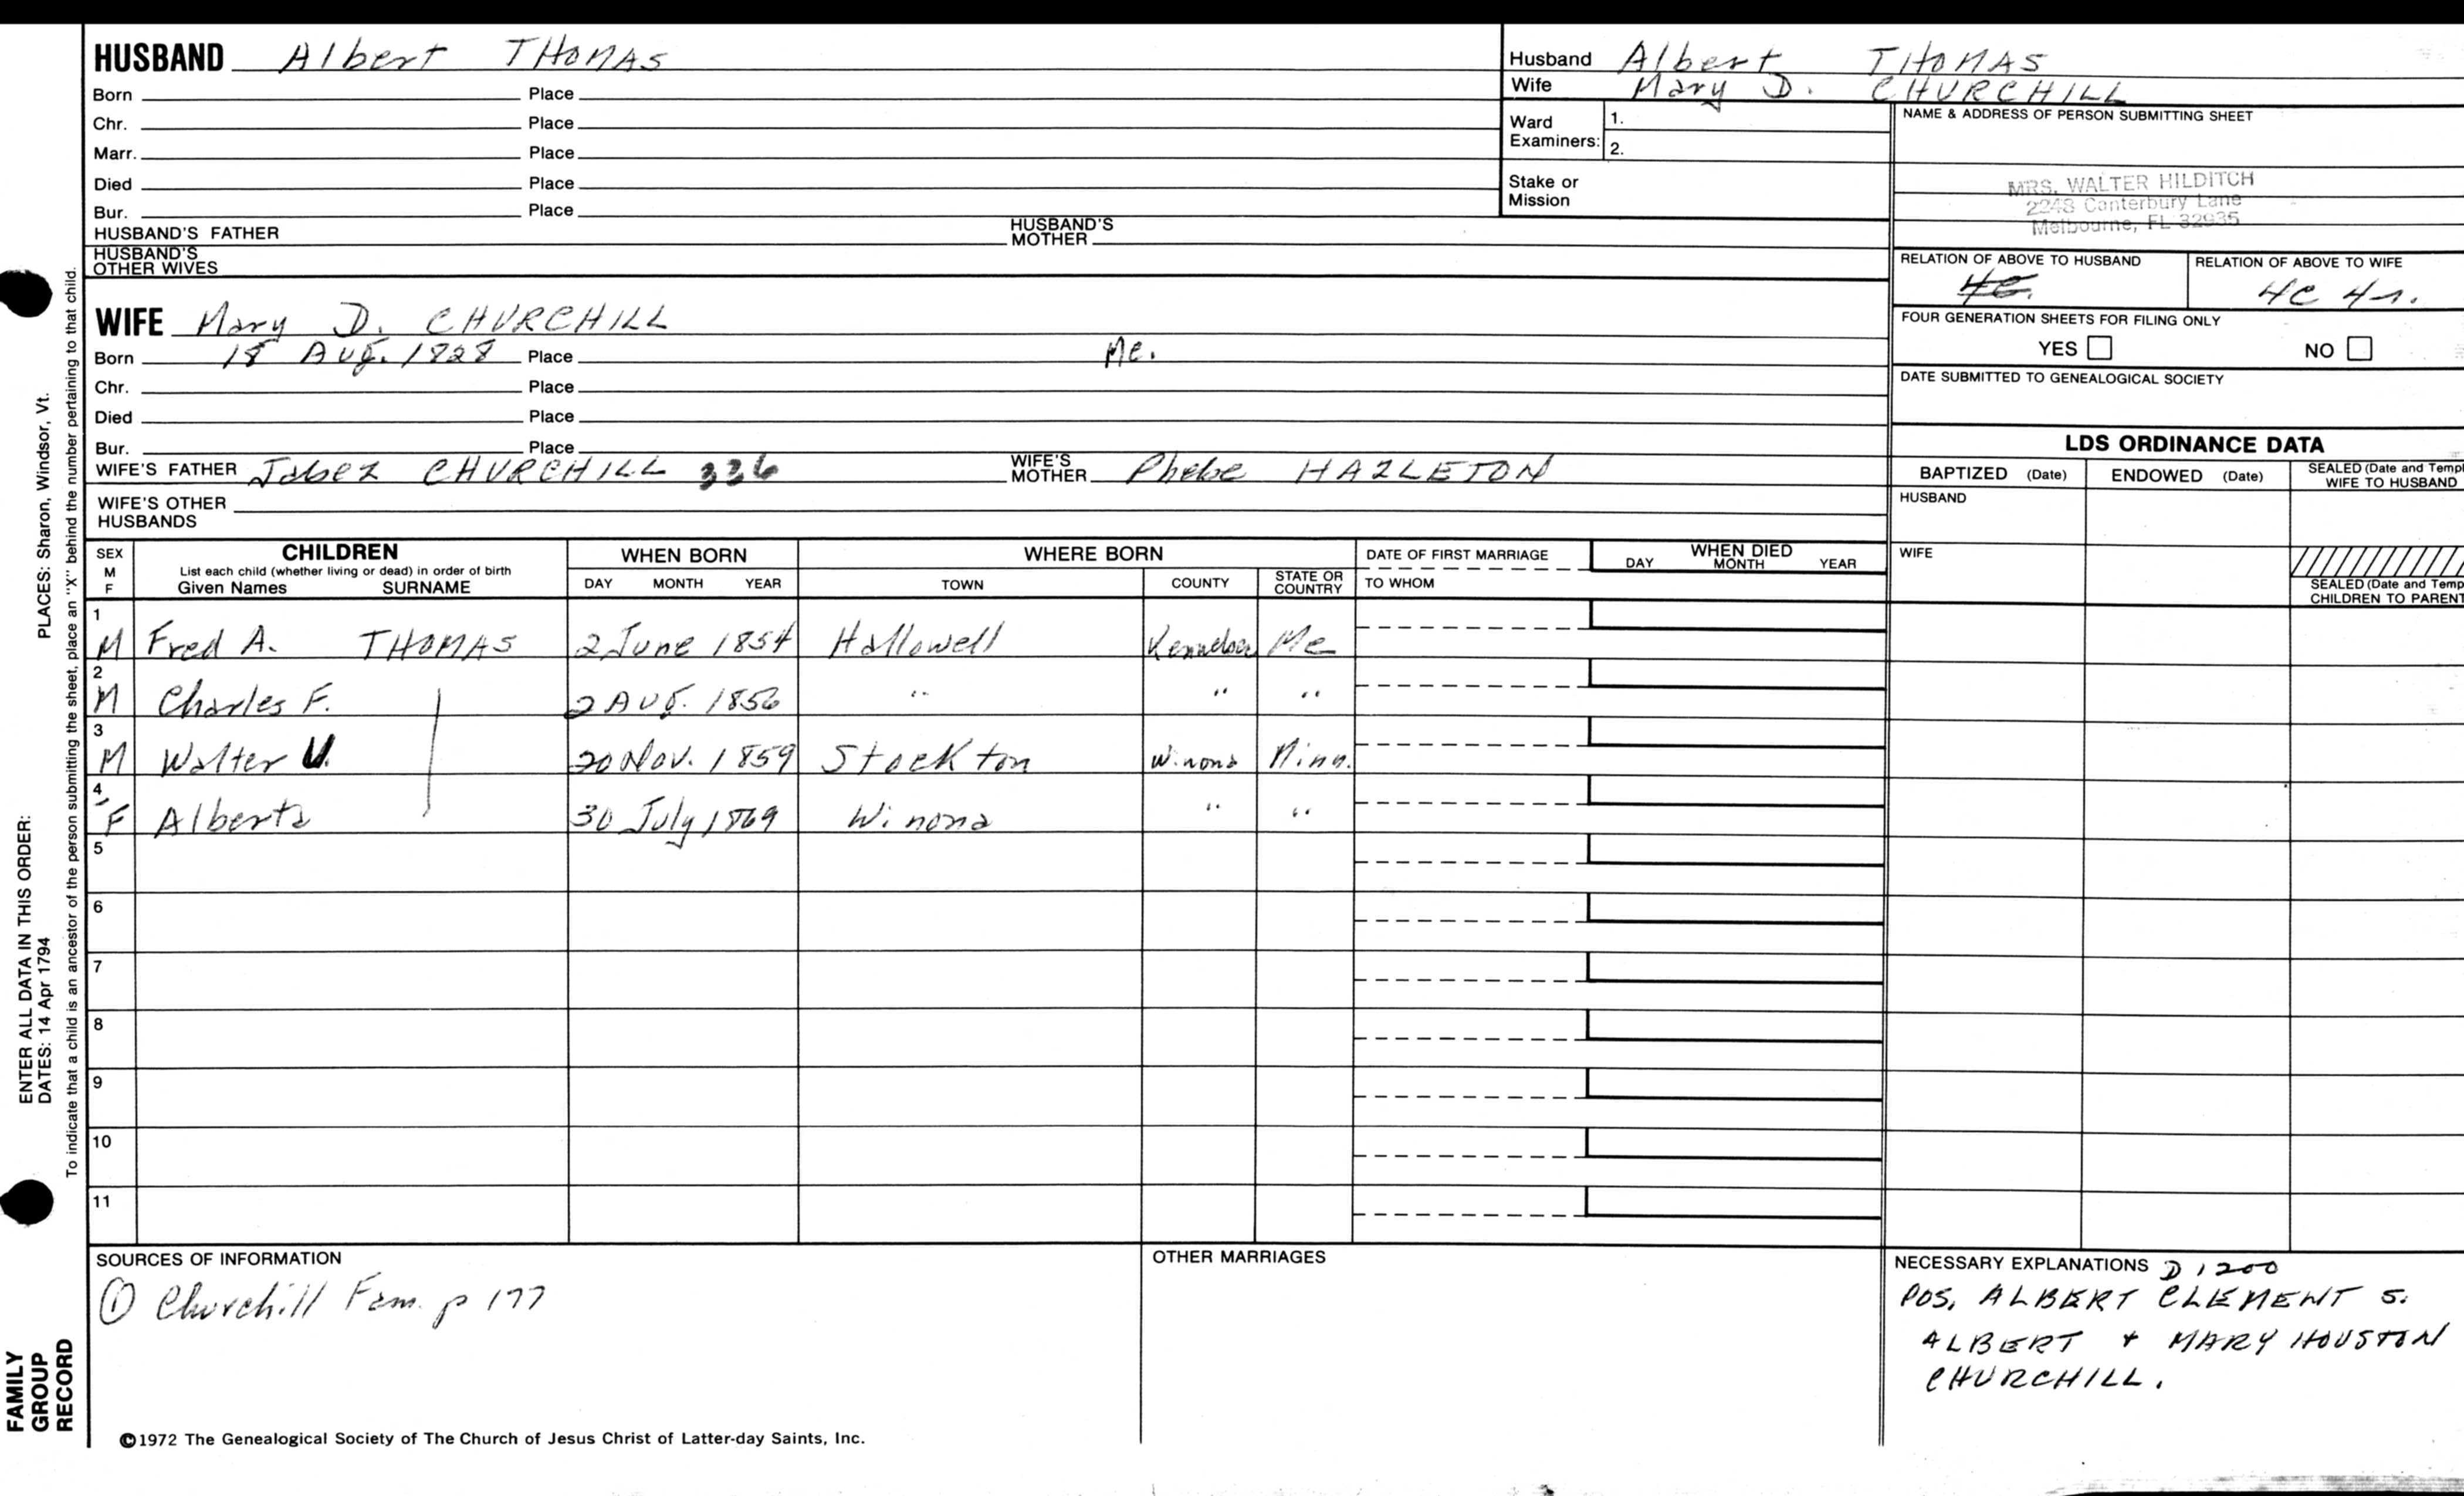 HUSBAND Albert THOMAS
Born Place
Chr. Place
Marr. Place
Died Place
Bur. Place
HUSBAND'S FATHER HUSBAND'S MOTHER
HUSBAND'S OTHER WIVES
Husband Albert THOMAS
Wife Mary D. CHURCHILL
Ward Examiners: 1.
2.
Stake or Mission
NAME & ADDRESS OF PERSON SUBMITTING SHEET
MRS. WALTER HILDITCH
2248 Canterbury Lane
Melbourne, FL 32935
RELATION OF ABOVE TO HUSBAND RELATION OF ABOVE TO WIFE
4C 4r.
FOUR GENERATION SHEETS FOR FILING ONLY
YES NO
DATE SUBMITTED TO GENEALOGICAL SOCIETY
WIFE Mary D. CHURCHILL
Born 18 Aug. 1828 Place Me.
Chr. Place
Died Place
Bur. Place
WIFE'S FATHER Jabez CHURCHILL 336 WIFE'S MOTHER Phebe HAZLETON
WIFE'S OTHER HUSBANDS
LDS ORDINANCE DATA
BAPTIZED (Date) ENDOWED (Date) SEALED (Date and Templ
WIFE TO HUSBAND
HUSBAND
WIFE
SEALED (Date and Temp
CHILDREN TO PARENT
SEX M F CHILDREN WHEN BORN WHERE BORN DATE OF FIRST MARRIAGE WHEN DIED
List each child (whether living or dead) in order of birth
Given Names SURNAME DAY MONTH YEAR TOWN COUNTY STATE OR COUNTRY TO WHOM DAY MONTH YEAR
1 M Fred A. THOMAS 2 June 1854 Hallowell Kennebec Me
2 M Charles F. 2 Aug. 1856 " " "
3 M Walter U. 20 Nov. 1859 Stockton Winona Minn.
4 F Alberta 30 July 1869 Winona " "
5
6
7
8
9
10
11
SOURCES OF INFORMATION
① Churchill Fam. p 177
OTHER MARRIAGES
NECESSARY EXPLANATIONS D 1200
POS. ALBERT CLEMENT S.
ALBERT + MARY HOUSTON
CHURCHILL.
©1972 The Genealogical Society of The Church of Jesus Christ of Latter-day Saints, Inc.
ENTER ALL DATA IN THIS ORDER:
DATES: 14 Apr 1794 PLACES: Sharon, Windsor, Vt.
To indicate that a child is an ancestor of the person submitting the sheet, place an "X" behind the number pertaining to that child.
FAMILY
GROUP
RECORD